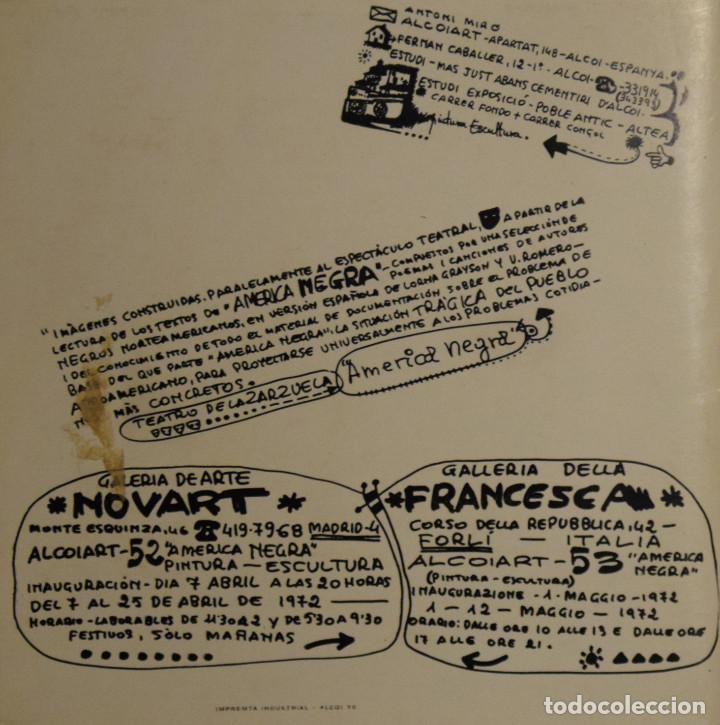 ANTONI MIRÓ
ALCOIART - APARTAT, 148 - ALCOI - ESPANYA.
FERNAN CABALLER, 12-1º - ALCOI - 331914
ESTUDI - MAS JUST ABANS CEMENTIRI D'ALCOI -
ESTUDI EXPOSICIÓ - POBLE ANTIC - ALTEA
CARRER FONDO + CARRER CONGOL
pintura Escultura.
"IMÁGENES CONSTRUIDAS. PARALELAMENTE AL ESPECTÁCULO TEATRAL, A PARTIR DE LA
LECTURA DE LOS TEXTOS DE "AMERICA NEGRA" - COMPUESTOS POR UNA SELECCIÓN DE
POEMAS I CANCIONES DE AUTORES
NEGROS NORTEAMERICANOS, EN VERSIÓN ESPAÑOLA DE LORNA GRAYSON Y V. ROMERO -
I DEL CONOCIMIENTO DE TODO EL MATERIAL DE DOCUMENTACIÓN SOBRE EL PROBLEMA DE
BASE DEL QUE PARTE "AMERICA NEGRA": LA SITUACIÓN TRÁGICA DEL PUEBLO
AFROAMERICANO, PARA PROYECTARSE UNIVERSALMENTE A LOS PROBLEMAS COTIDIA-
MÁS CONCRETOS.
TEATRO DE LA ZARZUELA "America Negra"
GALERIA DE ARTE
NOVART
MONTE ESQUINZA, 46 419-79-68 MADRID-4
ALCOIART-52 "AMERICA NEGRA"
PINTURA - ESCULTURA
INAUGURACIÓN - DIA 7 ABRIL A LAS 20 HORAS
DEL 7 AL 25 DE ABRIL DE 1972
HORARIO - LABORABLES DE 11'30 A 2 Y DE 5'30 A 9'30
FESTIVOS, SÓLO MAÑANAS
GALLERIA DELLA
FRANCESCA
CORSO DELLA REPUBBLICA, 42 -
FORLÍ - ITALIA
ALCOIART - 53 "AMERICA
NEGRA"
(PINTURA - ESCULTURA)
INAUGURAZIONE - 1 - MAGGIO - 1972
1 - 12 - MAGGIO - 1972
ORARIO: DALLE ORE 10 ALLE 13 E DALLE ORE
17 ALLE ORE 21.
IMPREMTA INDUSTRIAL - ALCOI
todocoleccion.net